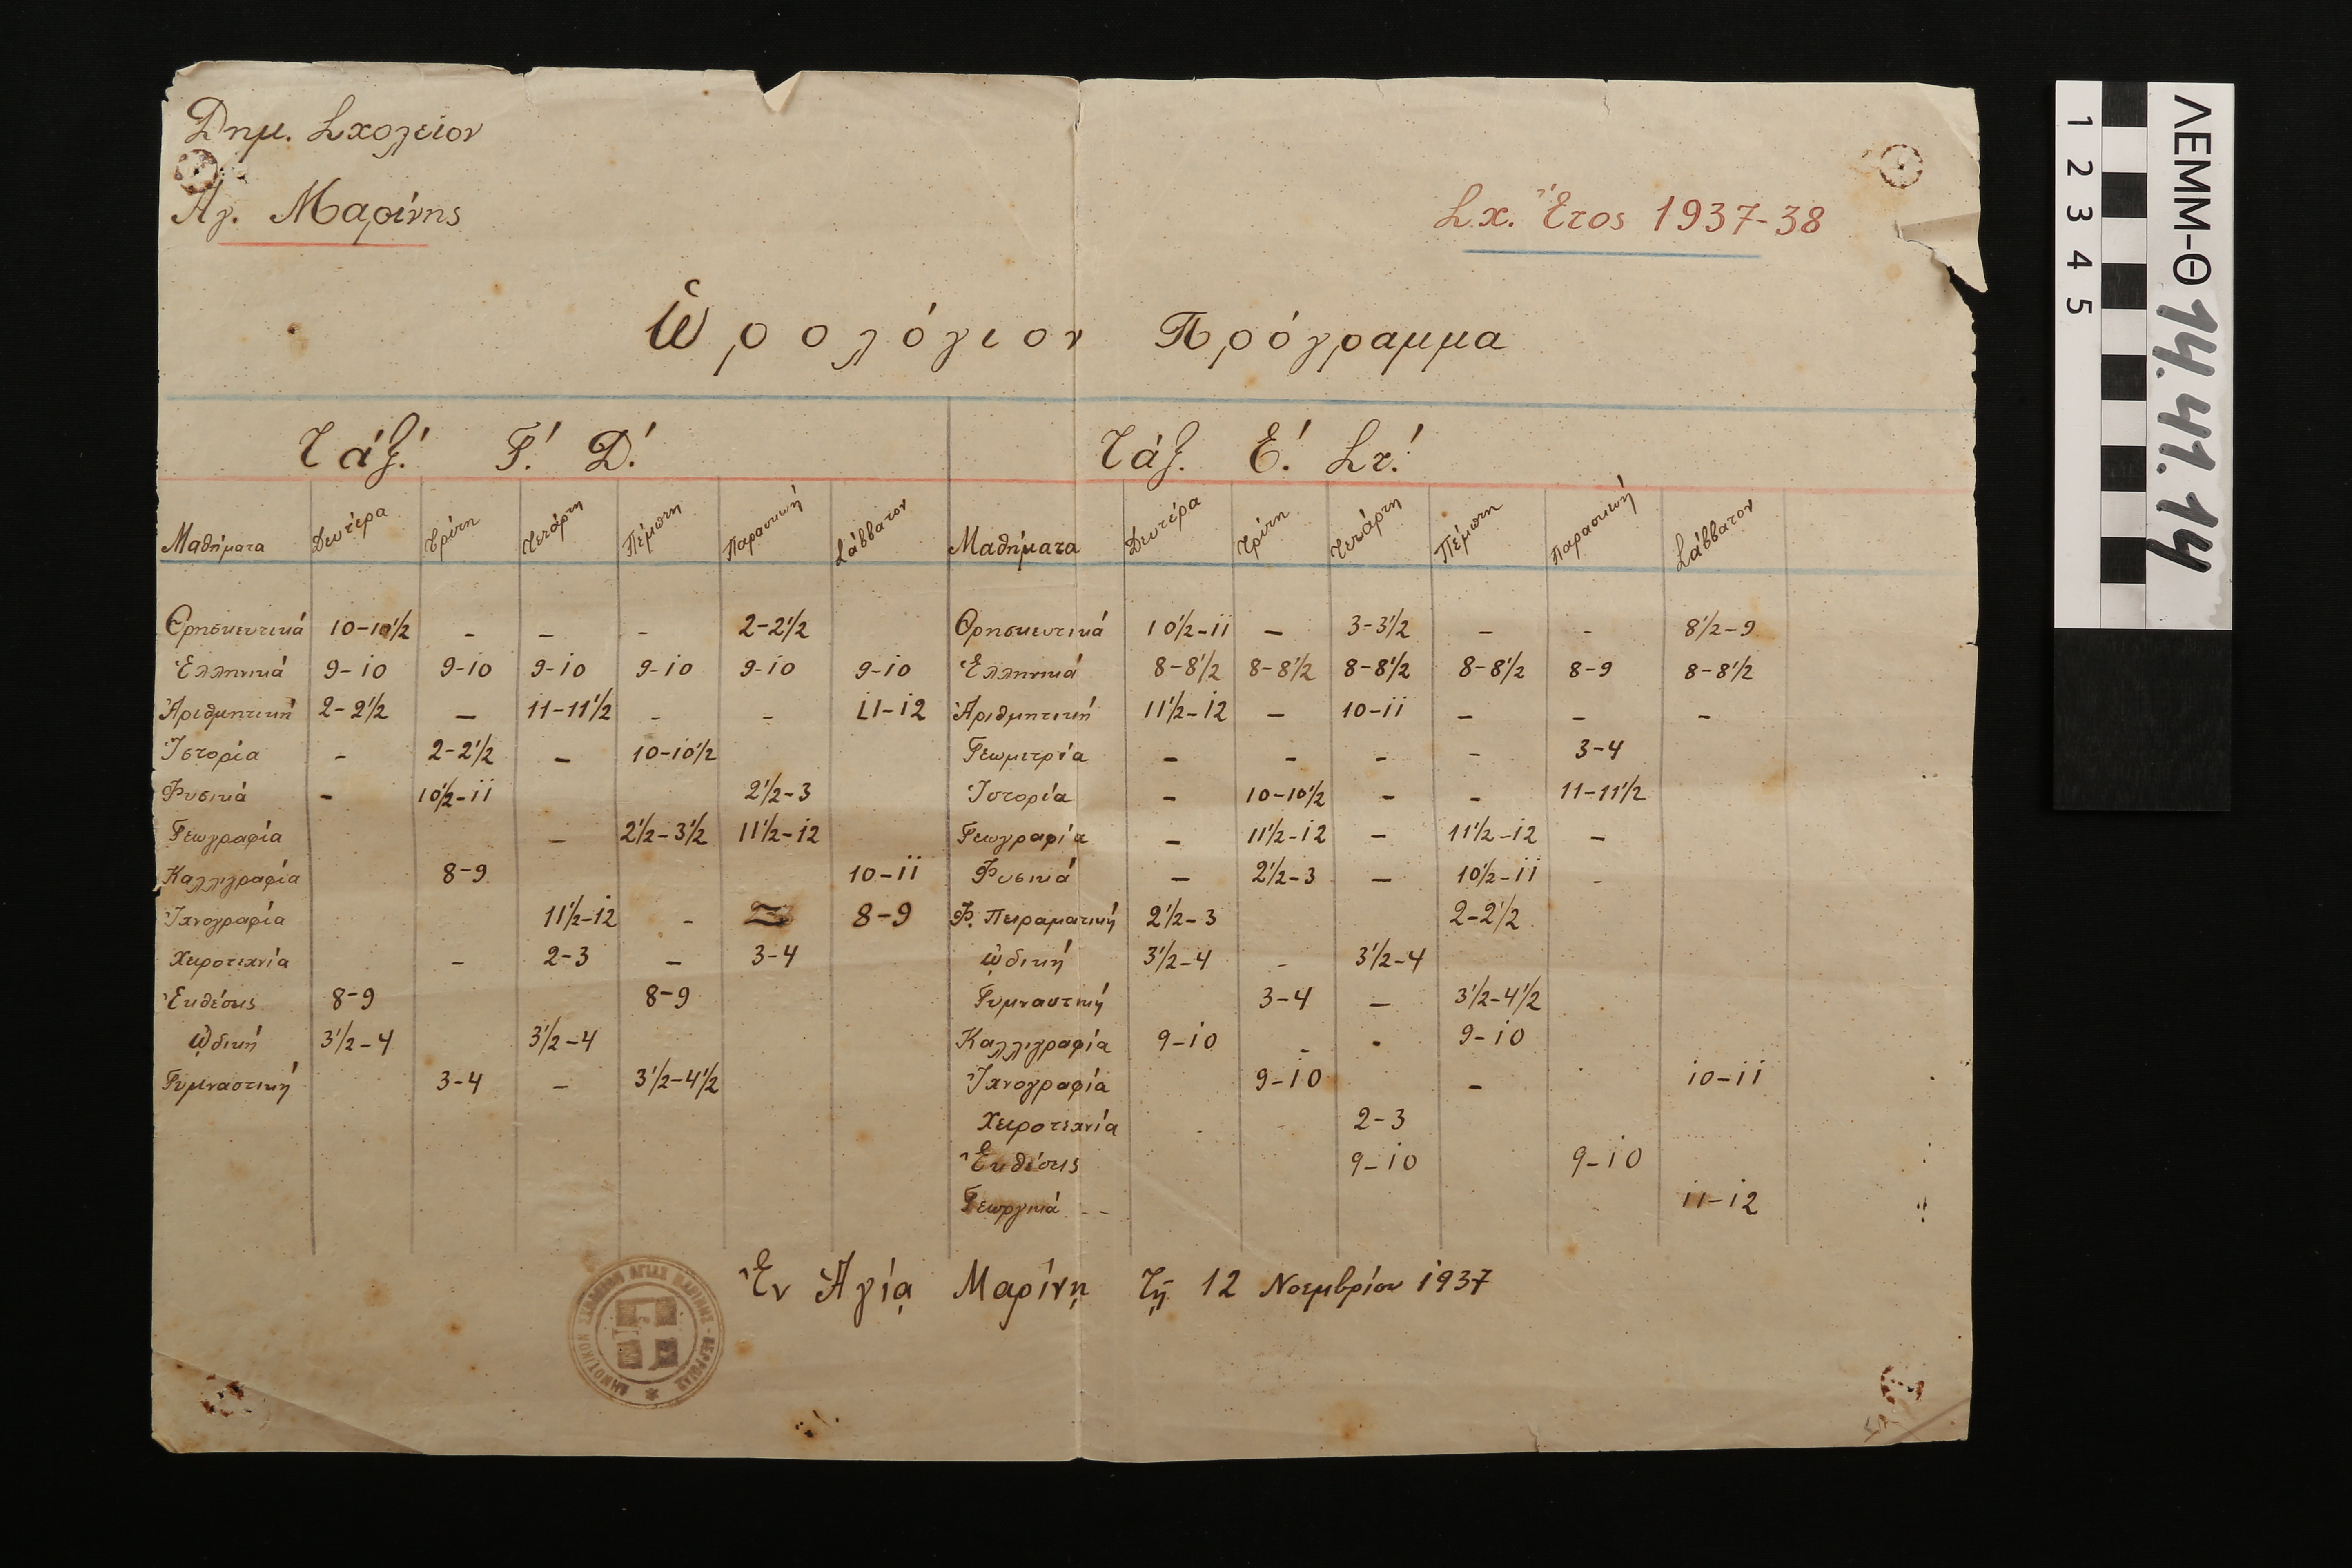 Δημ. Σχολεῖον
Ἁγ. Μαρίνης
Σχ. Ἔτος 1937-38
Ὡρολόγιον Πρόγραμμα
Τάξ. Γ! Δ! Τάξ. Ε! Στ!
Μαθήματα Δευτέρα Τρίτη Τετάρτη Πέμπτη Παρασκευή Σάββατον Μαθήματα Δευτέρα Τρίτη Τετάρτη Πέμπτη Παρασκευή Σάββατον
Θρησκευτικά 10-10½ - - - 2-2½ Θρησκευτικά 10½-11 - 3-3½ - - 8½-9
Ἑλληνικά 9-10 9-10 9-10 9-10 9-10 9-10 Ἑλληνικά 8-8½ 8-8½ 8-8½ 8-8½ 8-9 8-8½
Ἀριθμητική 2-2½ - 11-11½ - - 11-12 Ἀριθμητική 11½-12 - 10-11 - - -
Ἱστορία - 2-2½ - 10-10½ Γεωμετρία - - - - 3-4
Φυσικά - 10½-11 2½-3 Ἱστορία - 10-10½ - - 11-11½
Γεωγραφία - 2½-3½ 11½-12 Γεωγραφία - 11½-12 - 11½-12 -
Καλλιγραφία 8-9 10-11 Φυσικά - 2½-3 - 10½-11 -
Ἰχνογραφία 11½-12 - 8-9 Φ. Πειραματική 2½-3 2-2½
Χειροτεχνία - 2-3 - 3-4 ᾠδική 3½-4 - 3½-4
Ἐκθέσεις 8-9 8-9 Γυμναστική 3-4 - 3½-4½
ᾠδική 3½-4 3½-4 Καλλιγραφία 9-10 - - 9-10
Γυμναστική 3-4 - 3½-4½ Ἰχνογραφία 9-10 - 10-11
Χειροτεχνία 2-3
Ἐκθέσεις 9-10 9-10
Γεωργικά - - 11-12
Ἐν Ἁγίᾳ Μαρίνῃ τῇ 12 Νοεμβρίου 1937
ΔΗΜΟΤΙΚΟΝ ΣΧΟΛΕΙΟΝ ΑΓΙΑΣ ΜΑΡΙΝΗΣ - ΒΕΡΡΟΙΑΣ
ΛΕΜΜ-Θ 14.41.14
1 2 3 4 5